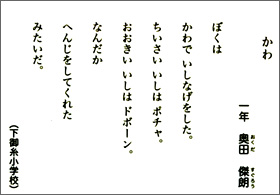 かわ
一年 奥田 傑朗
おくだ すぐろう
ぼくは
かわで いしなげをした。
ちいさい いしは ポチャ。
おおきい いしは ドボーン。
なんだか
へんじをしてくれた
みたいだ。
(下御糸小学校)